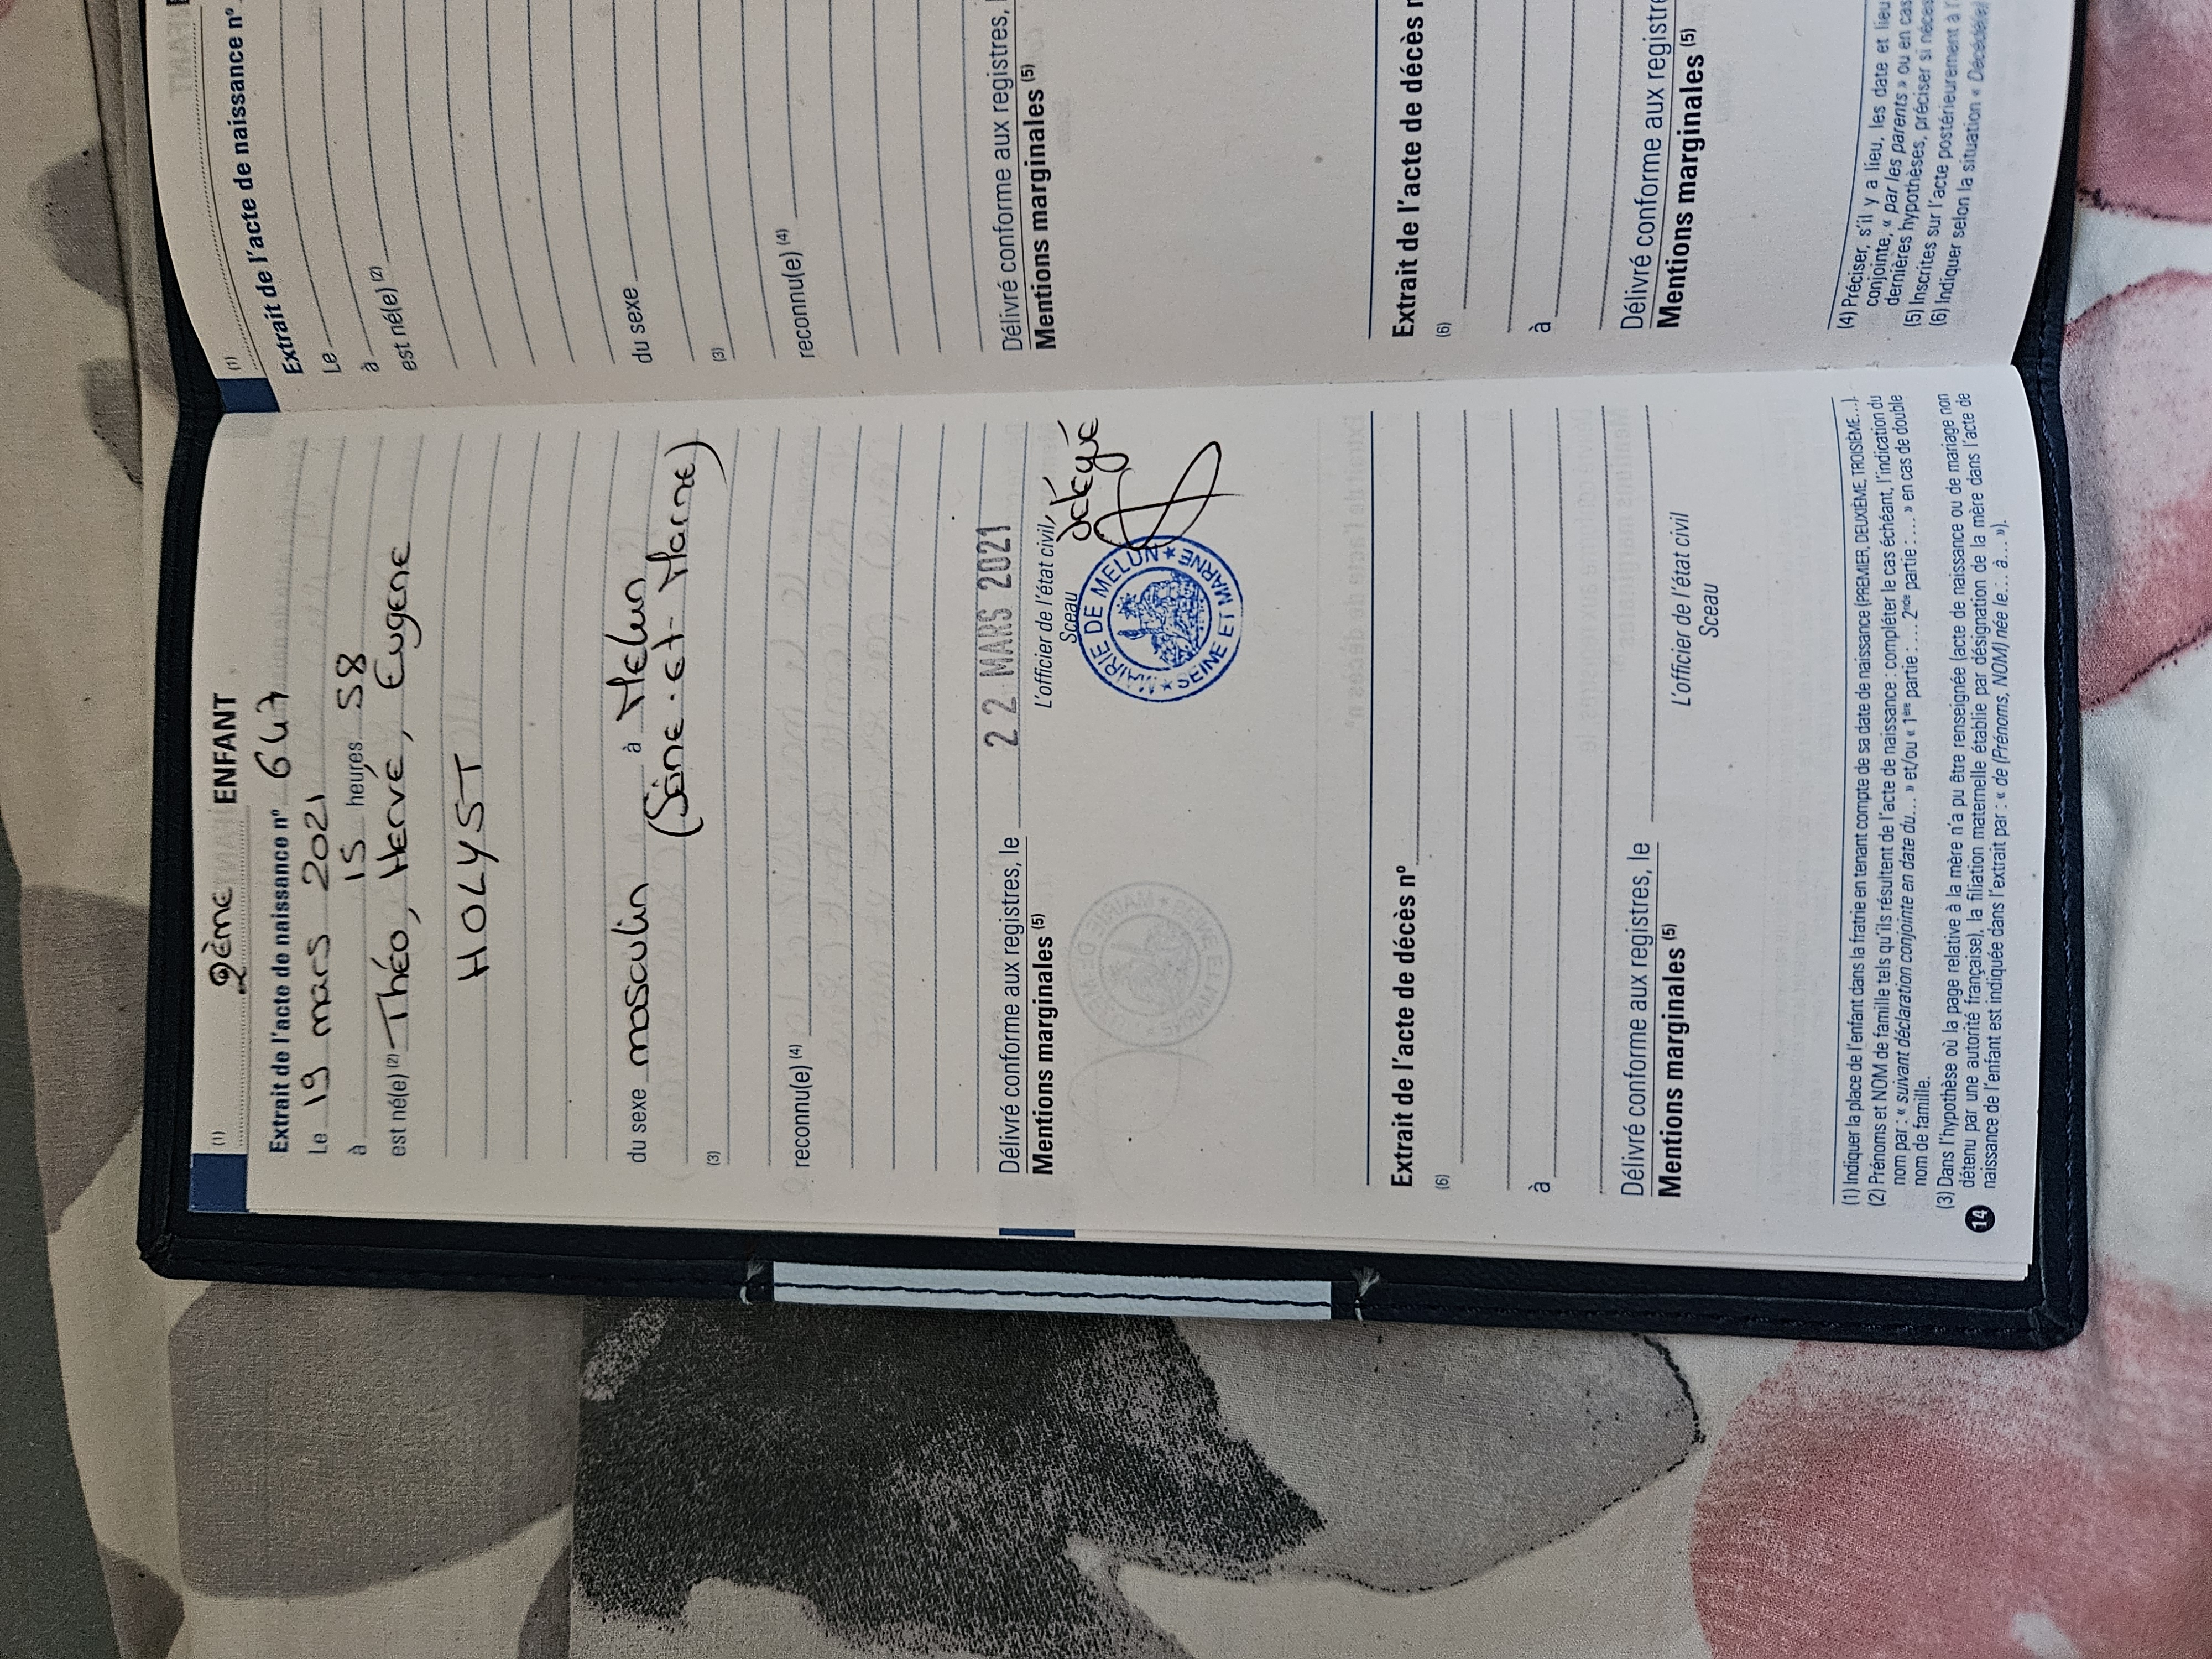 (1) 2ème ENFANT
Extrait de l'acte de naissance nº 647
Le 19 mars 2021
à 15 heures 58
est né(e) (2) Théo, Hervé, Eugène
HOLYST
du sexe masculin à Melun
(Seine-et-Marne)
(3)
reconnu(e) (4)
Délivré conforme aux registres, le 22 MARS 2021
Mentions marginales (5)
L'officier de l'état civil, délégué
Sceau
MAIRIE DE MELUN
SEINE ET MARNE
Extrait de l'acte de décès nº
(6)
à
Délivré conforme aux registres, le
Mentions marginales (5)
L'officier de l'état civil
Sceau
(1) Indiquer la place de l'enfant dans la fratrie en tenant compte de sa date de naissance (PREMIER, DEUXIÈME, TROISIÈME...).
(2) Prénoms et NOM de famille tels qu'ils résultent de l'acte de naissance : compléter le cas échéant, l'indication du
nom par : « suivant déclaration conjointe en date du... » et/ou « 1ère partie : .... 2nde partie : .... » en cas de double
nom de famille.
(3) Dans l'hypothèse où la page relative à la mère n'a pu être renseignée (acte de naissance ou de mariage non
détenu par une autorité française), la filiation maternelle établie par désignation de la mère dans l'acte de
naissance de l'enfant est indiquée dans l'extrait par : « de (Prénoms, NOM) née le... à... »).
14
(1)
Extrait de l'acte de naissance nº
Le
à
est né(e) (2)
du sexe
(3)
reconnu(e) (4)
Délivré conforme aux registres,
Mentions marginales (5)
Extrait de l'acte de décès
(6)
à
Délivré conforme aux
Mentions marginales (5)
(4) Préciser, s'il y a lieu, les date et lieu
conjointe, « par les parents » ou en cas
dernières hypothèses, préciser si
(5) Inscrites sur l'acte postérieurement à
(6) Indiquer selon la situation « Décédé(e)